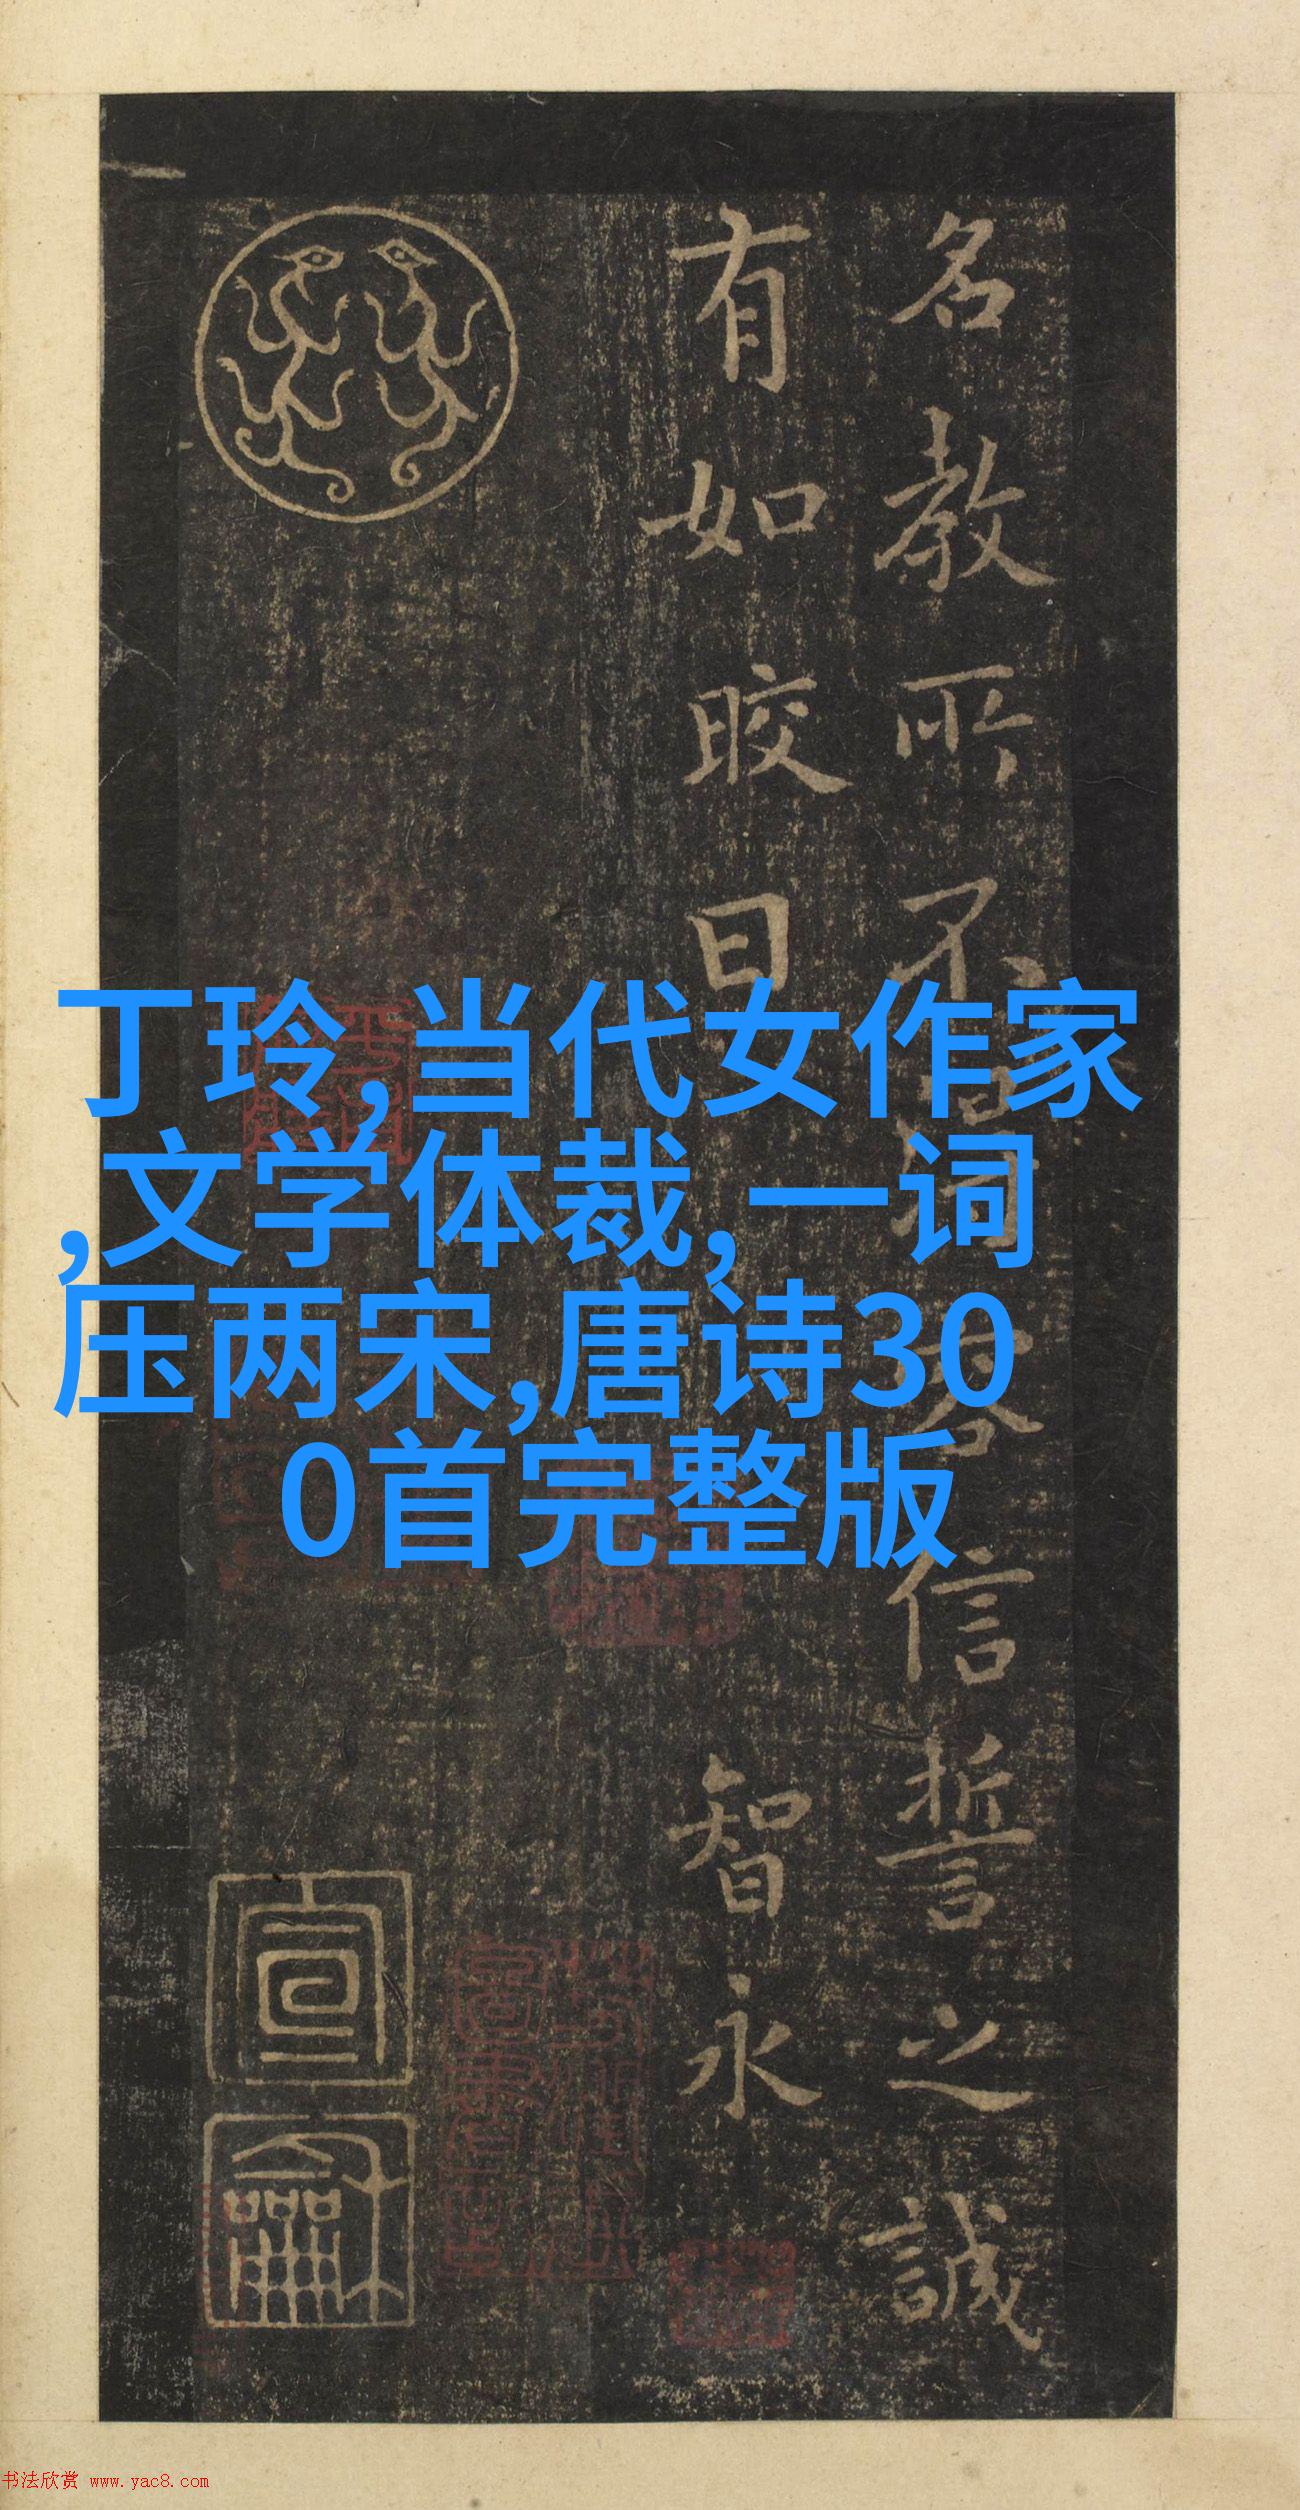 名教所不得容信誓之誠
有如晈日 智永
宣
龢
丁玲,当代女作家
,文学体裁,一词
压两宋,唐诗30
0首完整版
书法欣赏 www.yac8.com